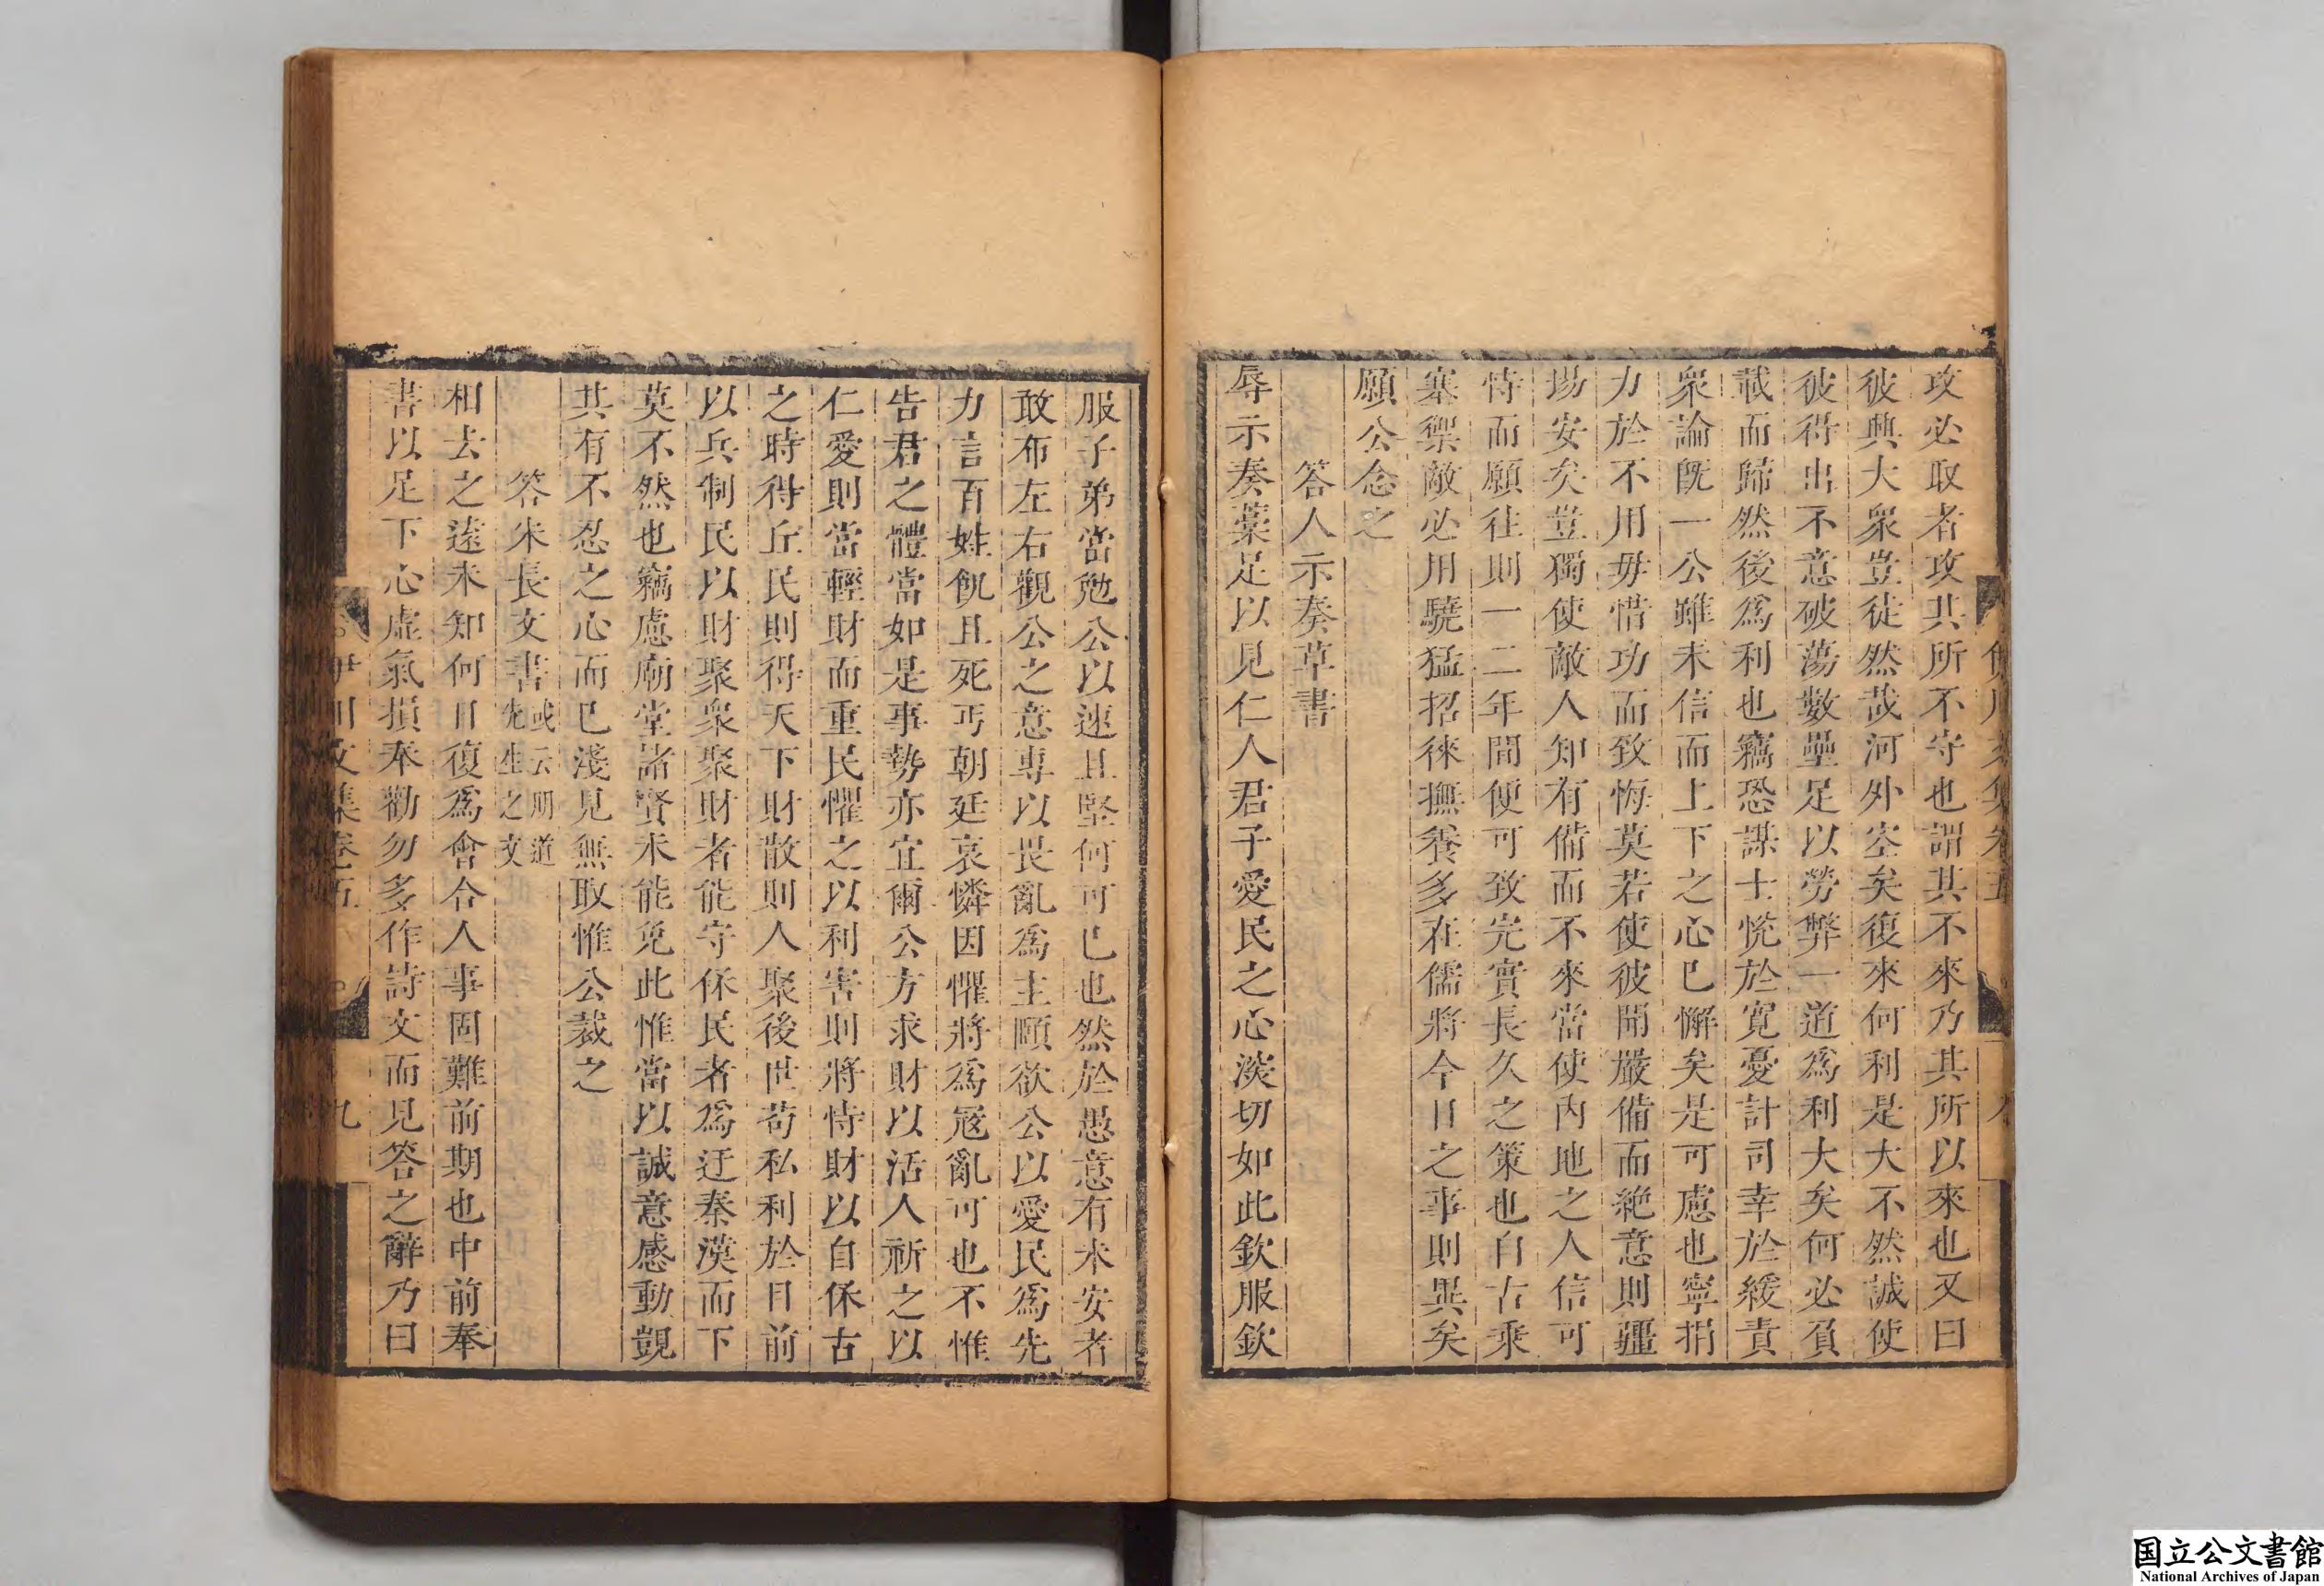 攻必取者攻其所不守也謂其不來乃其所以來也又曰
彼興大衆豈徒然哉河外空矣復來何利是大不然誠使
彼得出不意破蕩數壘足以勞弊一道爲利大矣何必負
載而歸然後爲利也竊恐謀士恱於寛憂計司幸於緩責
衆論旣一公雖未信而上下之心已懈矣是可慮也寧捐
力於不用毋惜功而致悔莫若使彼聞嚴備而絶意則疆
場安矣豈獨使敵人知有備而不來當使內地之人信可
恃而願往則一二年間便可致完實長久之策也自古乘
塞禦敵必用驍猛招徠撫養多在儒將今日之事則異矣
願公念之
答人示奏草書
辱示奏藁足以見仁人君子愛民之心深切如此欽服欽
服子弟當勉公以速且堅何可已也然於愚意有未安者
敢布左右觀公之意專以畏亂爲主頤欲公以愛民爲先
力言百姓飢且死丐朝廷哀憐因懼將爲宼亂可也不惟
告君之體當如是事勢亦宜爾公方求財以活人祈之以
仁愛則當輕財而重民懼之以利害則將恃財以自保古
之時得丘民則得天下財散則人聚後世苟私利於目前
以兵制民以財聚衆聚財者能守保民者爲迂秦漢而下
莫不然也竊慮廟堂諸賢未能免此惟當以誠意感動覬
其有不忍之心而已淺見無取惟公裁之
答朱長文書 或云明道先生之文
相去之遠未知何日復爲會合人事固難前期也中前奉
書以足下心虛氣損奉勸勿多作詩文而見答之辭乃曰
伊川文集卷五 九